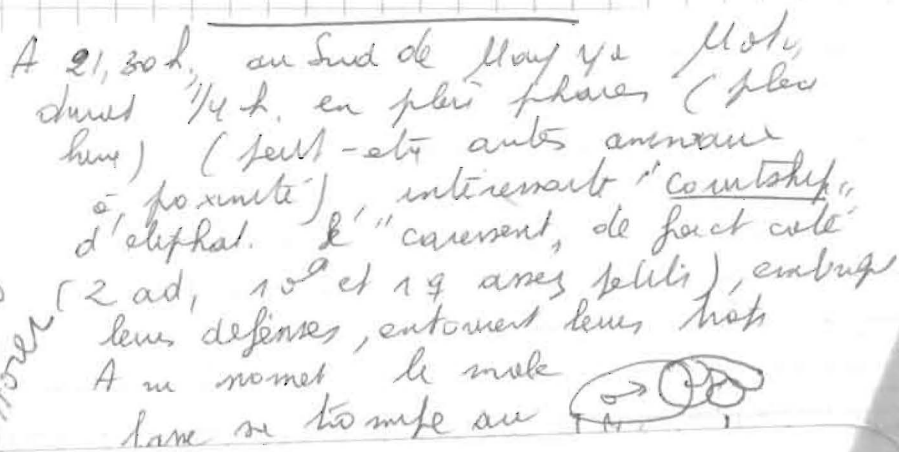 A 21,30h, au Sud de May ya Moto,
durant 1/4 h. en plein phares (pleine
lune) (peut-etre autres animaux
à proximité), intéressante "courtship"
d'elephant. Se "caressent, de face et coté
(2 ad, 1♂ et 1♀ assez petits),
leurs défenses, entourent leurs
A un moment le male
sa trompe au